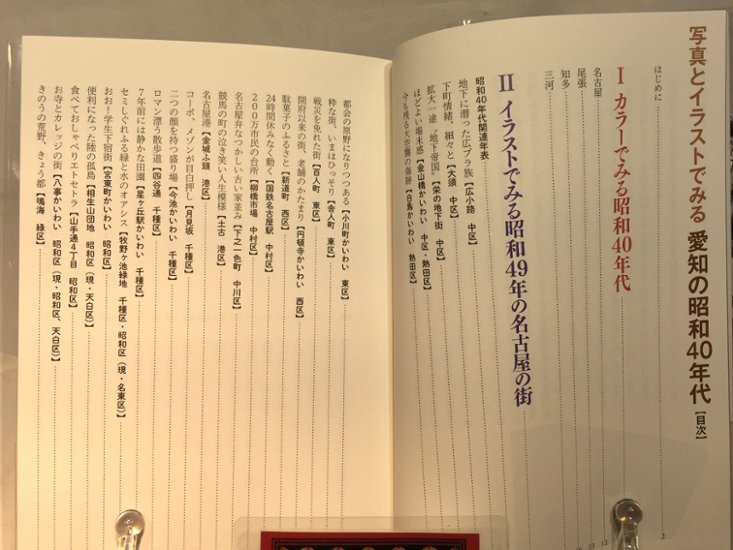 写真とイラストでみる 愛知の昭和40年代【目次】
はじめに 2
Ⅰ カラーでみる昭和40年代
名古屋
尾張
知多
三河
Ⅱ イラストでみる昭和49年の名古屋の街
昭和40年代関連年表
地下に潜った広ブラ族【広小路 中区】
下町情緒、細々と【大須 中区】
拡大一途〝地下帝国〟【栄の地下街 中区】
ほどよい場末感【金山橋かいわい 中区・熱田区】
今も残る大空襲の傷跡【白鳥かいわい 熱田区】
都会の原野になりつつある【小川町かいわい 東区】
粋な街、いまはひっそり【舎人町 東区】
戦災を免れた街【百人町 東区】
開府以来の街、老舗のかたまり【円頓寺かいわい 西区】
駄菓子のふるさと【新道町 西区】
24時間休みなく動く【国鉄名古屋駅 中村区】
200万市民の台所【柳橋市場 中村区】
名古屋弁なつかしい古い家並み【下之一色町 中川区】
競馬の町の泣き笑い人生模様【土古 港区】
名古屋港【金城ふ頭 港区】
コーポ、メゾンが目白押し【月見坂 千種区】
二つの顔を持つ盛り場【今池かいわい 千種区】
ロマン漂う散歩道【四谷通 千種区】
7年前には静かな田園【星ヶ丘駅かいわい 千種区】
セミしぐれふる緑と水のオアシス【牧野ヶ池緑地 千種区・昭和区(現・名東区)】
おお!学生下宿街【宮東町かいわい 昭和区】
便利になった陸の孤島【相生山団地 昭和区(現・天白区)】
食べておしゃべりエトセトラ【山手通4丁目 昭和区】
お寺とカレッジの街【八事かいわい 昭和区(現・昭和区、天白区)】
きのうの荒野、きょう都【鳴海 緑区】